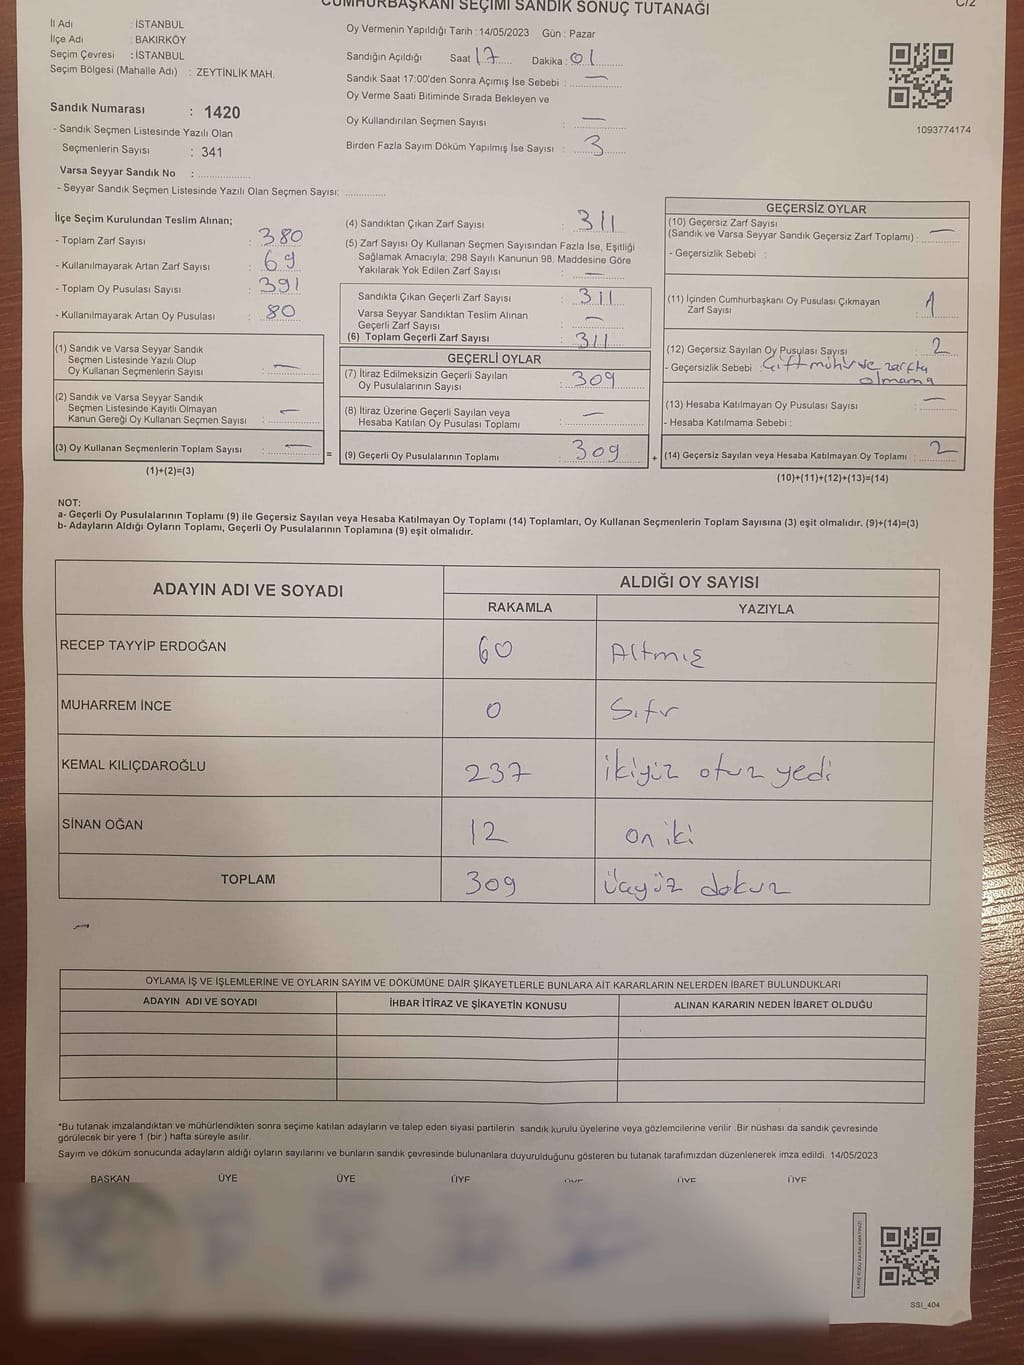 CUMHURBAŞKANI SEÇİMİ SANDIK SONUÇ TUTANAĞI
C/2
İl Adı : İSTANBUL
İlçe Adı : BAKIRKÖY
Seçim Çevresi : İSTANBUL
Seçim Bölgesi (Mahalle Adı) : ZEYTİNLİK MAH.
Sandık Numarası : 1420
- Sandık Seçmen Listesinde Yazılı Olan
Seçmenlerin Sayısı : 341
Varsa Seyyar Sandık No :
- Seyyar Sandık Seçmen Listesinde Yazılı Olan Seçmen Sayısı:
Oy Vermenin Yapıldığı Tarih : 14/05/2023 Gün : Pazar
Sandığın Açıldığı Saat 17 Dakika : 01
Sandık Saat 17:00'den Sonra Açımış İse Sebebi : —
Oy Verme Saati Bitiminde Sırada Bekleyen ve
Oy Kullandırılan Seçmen Sayısı : —
Birden Fazla Sayım Döküm Yapılmış İse Sayısı : 3
1093774174
İlçe Seçim Kurulundan Teslim Alınan;
- Toplam Zarf Sayısı : 380
- Kullanılmayarak Artan Zarf Sayısı : 69
- Toplam Oy Pusulası Sayısı : 391
- Kullanılmayarak Artan Oy Pusulası : 80
(1) Sandık ve Varsa Seyyar Sandık
Seçmen Listesinde Yazılı Olup
Oy Kullanan Seçmenlerin Sayısı : —
(2) Sandık ve Varsa Seyyar Sandık
Seçmen Listesinde Kayıtlı Olmayan
Kanun Gereği Oy Kullanan Seçmen Sayısı : —
(3) Oy Kullanan Seçmenlerin Toplam Sayısı : —
(1)+(2)=(3)
=
(4) Sandıktan Çıkan Zarf Sayısı : 311
(5) Zarf Sayısı Oy Kullanan Seçmen Sayısından Fazla İse, Eşitliği
Sağlamak Amacıyla; 298 Sayılı Kanunun 98. Maddesine Göre
Yakılarak Yok Edilen Zarf Sayısı : —
Sandıkta Çıkan Geçerli Zarf Sayısı : 311
Varsa Seyyar Sandıktan Teslim Alınan
Geçerli Zarf Sayısı : —
(6) Toplam Geçerli Zarf Sayısı : 311
GEÇERLİ OYLAR
(7) İtiraz Edilmeksizin Geçerli Sayılan
Oy Pusulalarının Sayısı : 309
(8) İtiraz Üzerine Geçerli Sayılan veya
Hesaba Katılan Oy Pusulası Toplamı : —
(9) Geçerli Oy Pusulalarının Toplamı : 309
+
GEÇERSİZ OYLAR
(10) Geçersiz Zarf Sayısı
(Sandık ve Varsa Seyyar Sandık Geçersiz Zarf Toplamı) : —
- Geçersizlik Sebebi :
(11) İçinden Cumhurbaşkanı Oy Pusulası Çıkmayan
Zarf Sayısı : 1
(12) Geçersiz Sayılan Oy Pusulası Sayısı : 2
- Geçersizlik Sebebi : Çift mühür ve zarfta
olmama
(13) Hesaba Katılmayan Oy Pusulası Sayısı : —
- Hesaba Katılmama Sebebi :
(14) Geçersiz Sayılan veya Hesaba Katılmayan Oy Toplamı : 2
(10)+(11)+(12)+(13)=(14)
NOT:
a- Geçerli Oy Pusulalarının Toplamı (9) ile Geçersiz Sayılan veya Hesaba Katılmayan Oy Toplamı (14) Toplamları, Oy Kullanan Seçmenlerin Toplam Sayısına (3) eşit olmalıdır. (9)+(14)=(3)
b- Adayların Aldığı Oyların Toplamı, Geçerli Oy Pusulalarının Toplamına (9) eşit olmalıdır.
ADAYIN ADI VE SOYADI
ALDIĞI OY SAYISI
RAKAMLA YAZIYLA
RECEP TAYYİP ERDOĞAN 60 Altmış
MUHARREM İNCE 0 Sıfır
KEMAL KILIÇDAROĞLU 237 ikiyüz otuz yedi
SİNAN OĞAN 12 on iki
TOPLAM 309 üçyüz dokuz
OYLAMA İŞ VE İŞLEMLERİNE VE OYLARIN SAYIM VE DÖKÜMÜNE DAİR ŞİKAYETLERLE BUNLARA AİT KARARLARIN NELERDEN İBARET BULUNDUKLARI
ADAYIN ADI VE SOYADI İHBAR İTİRAZ VE ŞİKAYETİN KONUSU ALINAN KARARIN NEDEN İBARET OLDUĞU
*Bu tutanak imzalandıktan ve mühürlendikten sonra seçime katılan adayların ve talep eden siyasi partilerin sandık kurulu üyelerine veya gözlemcilerine verilir .Bir nüshası da sandık çevresinde
görülecek bir yere 1 (bir ) hafta süreyle asılır.
Sayım ve döküm sonucunda adayların aldığı oyların sayılarını ve bunların sandık çevresinde bulunanlara duyurulduğunu gösteren bu tutanak tarafımızdan düzenlenerek imza edildi. 14/05/2023
BAŞKAN ÜYE ÜYE ÜYE ÜYE ÜYE ÜYE
SSI_404